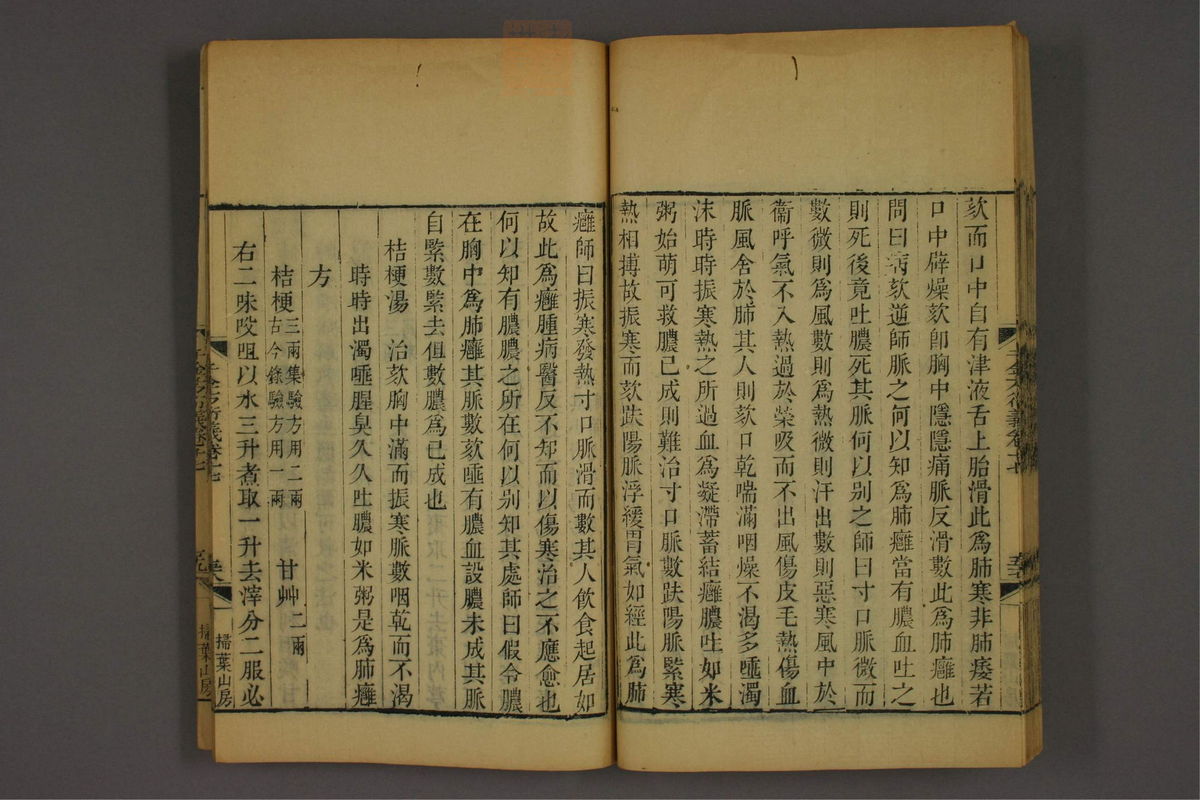 欬而口中自有津液舌上胎滑此爲肺寒非肺痿若
口中辟燥欬卽胸中隱隱痛脈反滑數此爲肺癰也
問曰病欬逆師脈之何以知爲肺癰當有膿血吐之
則死後竟吐膿死其脈何以别之師曰寸口脈微而
數微則爲風數則爲熱微則汗出數則惡寒風中於
衞呼氣不入熱過於榮吸而不出風傷皮毛熱傷血
脈風舍於肺其人則欬口乾喘滿咽燥不渴多唾濁
沫時時振寒熱之所過血爲凝滯蓄結癰膿吐如米
粥始萌可救膿已成則難治寸口脈數趺陽脈緊寒
熱相搏故振寒而欬趺陽脈浮緩胃氣如經此爲肺
癰師曰振寒發熱寸口脈滑而數其人飮食起居如
故此爲癰腫病醫反不知而以傷寒治之不應愈也
何以知有膿之所在何以别知其處師曰假令膿
在胸中爲肺癰其脈數欬唾有膿血設膿未成其脈
自緊數緊去但數膿爲已成也
桔梗湯 治欬胸中滿而振寒脈數咽乾而不渴
時時出濁唾腥臭久久吐膿如米粥是爲肺癰
方
桔梗三兩集驗方用二兩古今錄驗方用一兩 甘艸二兩
右二味㕮咀以水三升煮取一升去滓分二服必
掃葉山房